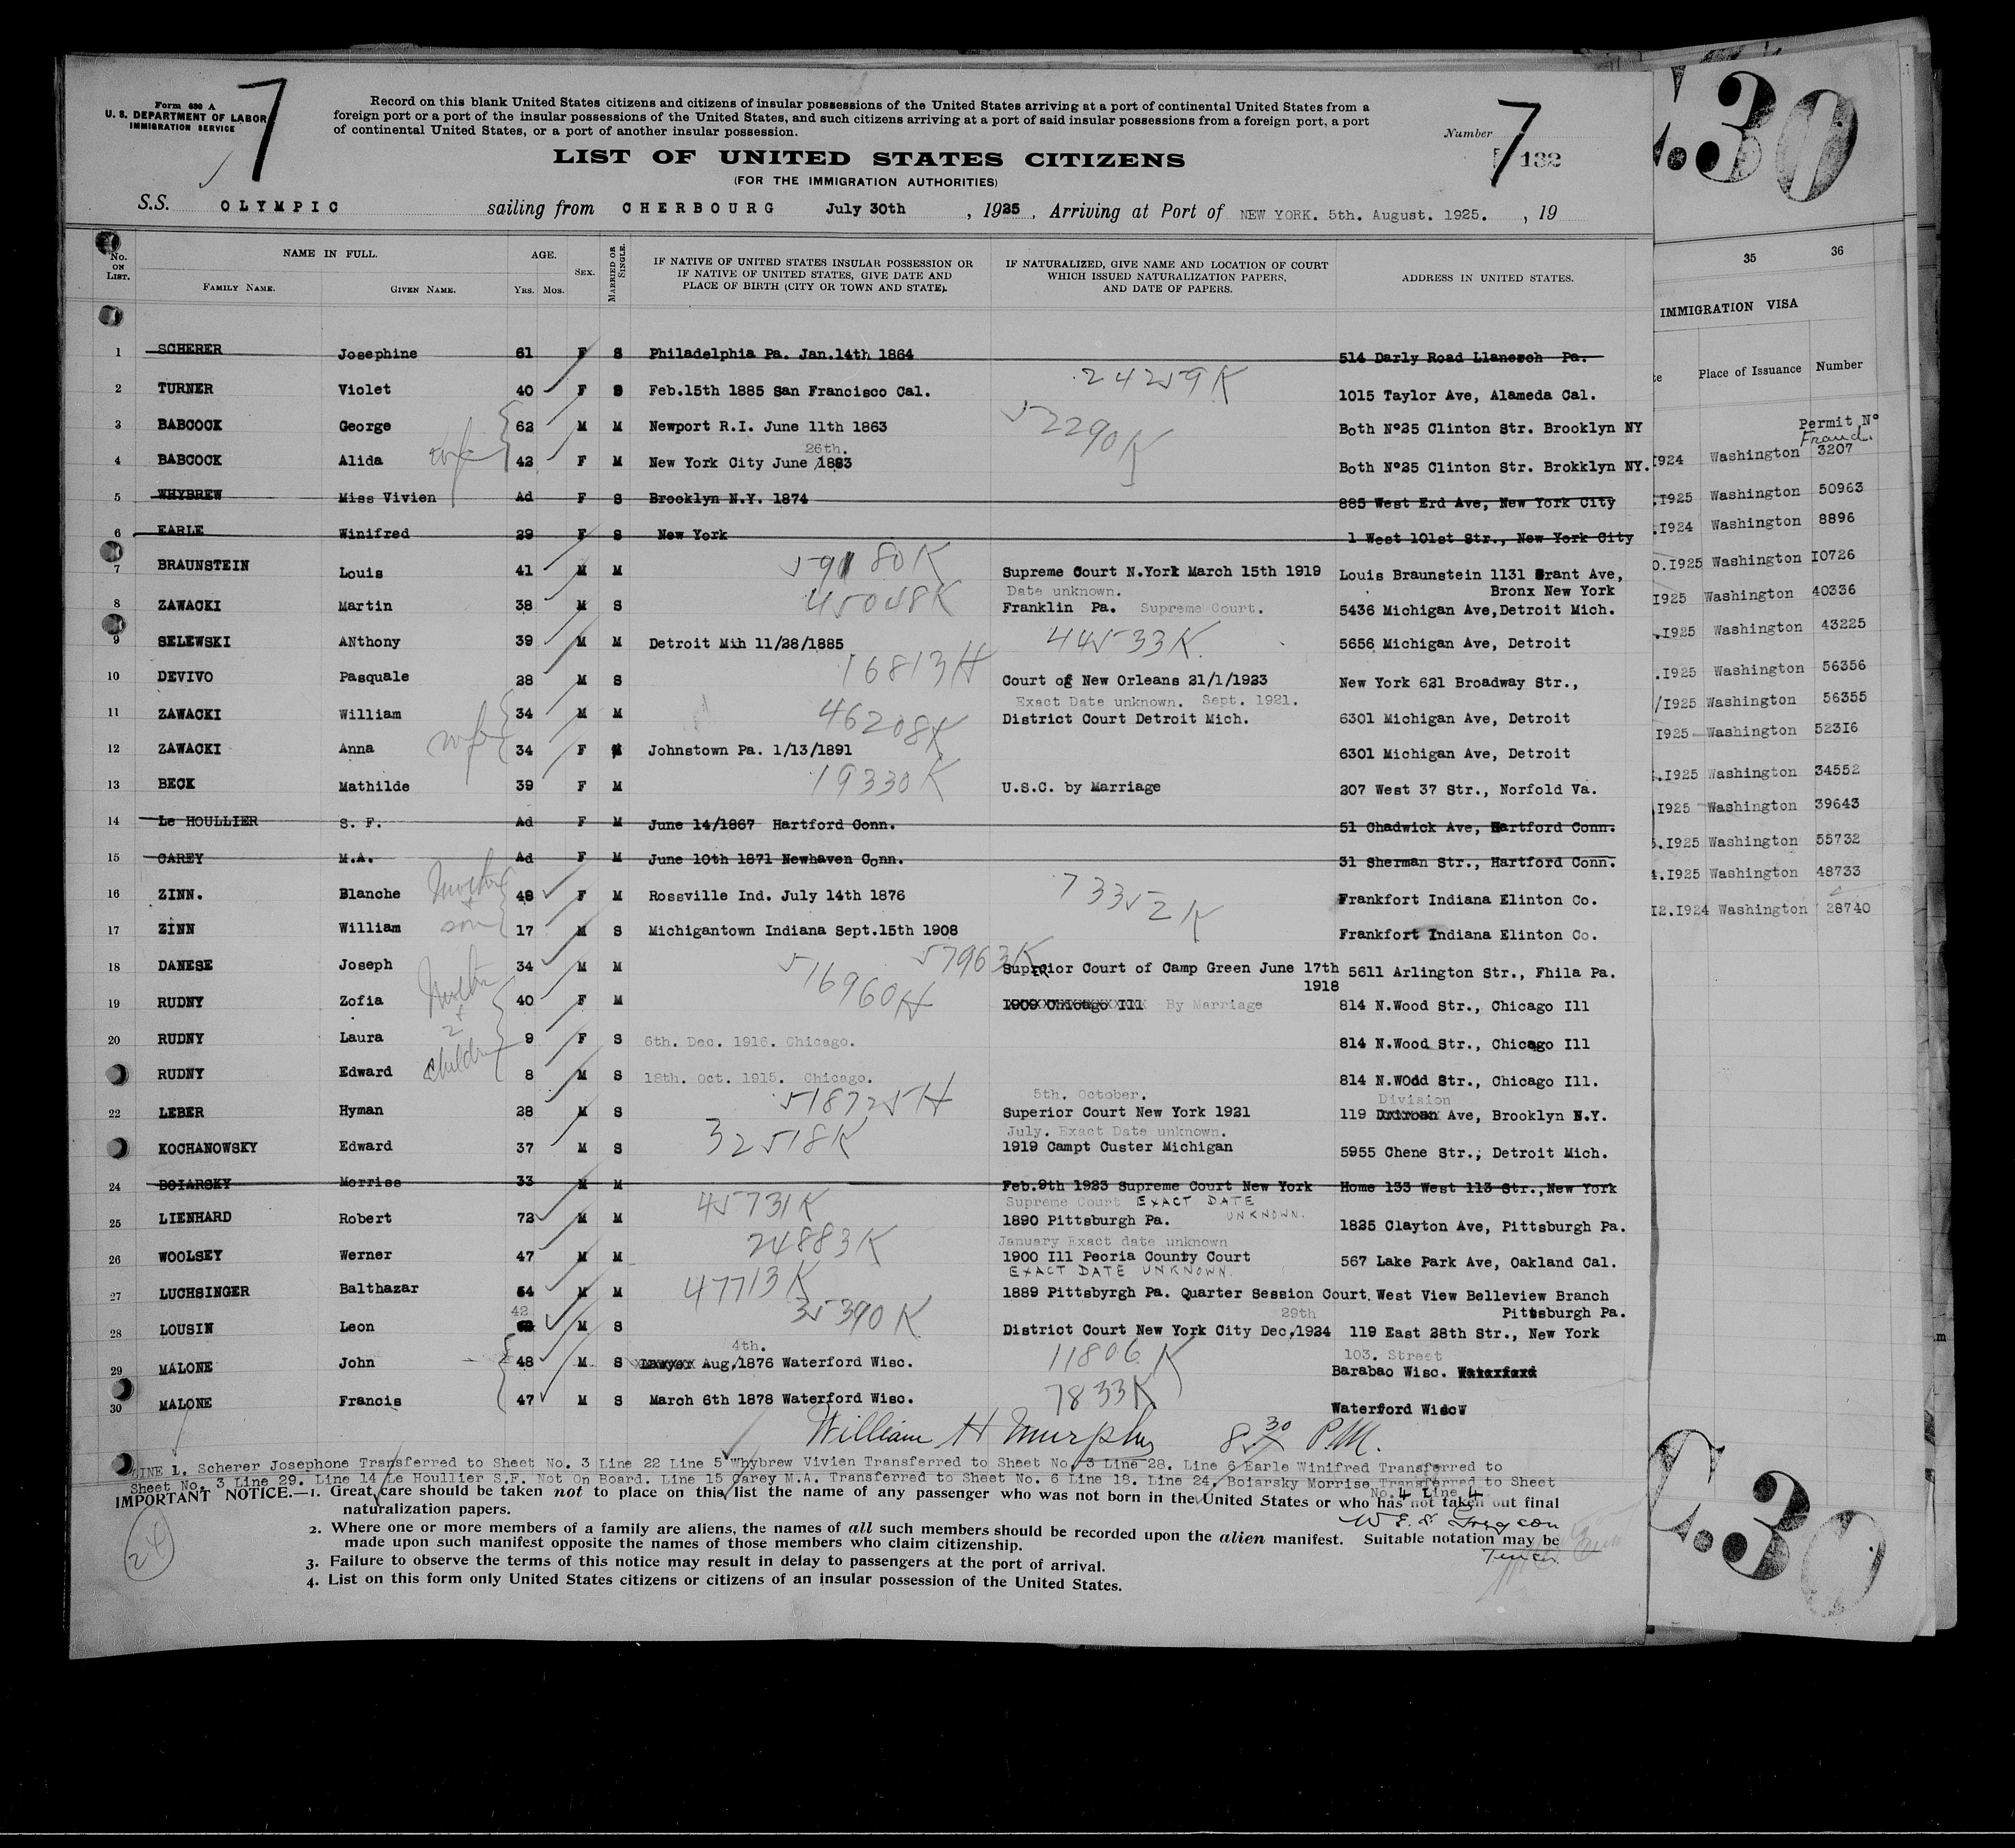 Form 630 A
U. S. DEPARTMENT OF LABOR
IMMIGRATION SERVICE
7
Record on this blank United States citizens and citizens of insular possessions of the United States arriving at a port of continental United States from a
foreign port or a port of the insular possessions of the United States, and such citizens arriving at a port of said insular possessions from a foreign port, a port
of continental United States, or a port of another insular possession.
Number 7 132
LIST OF UNITED STATES CITIZENS
(FOR THE IMMIGRATION AUTHORITIES)
S.S. OLYMPIC sailing from CHERBOURG July 30th , 1925 , Arriving at Port of NEW YORK. 5th. August. 1925. , 19
No. ON LIST. NAME IN FULL. FAMILY NAME. GIVEN NAME. AGE. YRS. MOS. SEX. MARRIED OR SINGLE. IF NATIVE OF UNITED STATES INSULAR POSSESSION OR IF NATIVE OF UNITED STATES, GIVE DATE AND PLACE OF BIRTH (CITY OR TOWN AND STATE). IF NATURALIZED, GIVE NAME AND LOCATION OF COURT WHICH ISSUED NATURALIZATION PAPERS, AND DATE OF PAPERS. ADDRESS IN UNITED STATES.
1 SCHERER Josephine 61 F S Philadelphia Pa. Jan.14th 1864 514 Darly Road Llanerch Pa.
24259K
2 TURNER Violet 40 F S Feb.15th 1885 San Francisco Cal. 1015 Taylor Ave, Alameda Cal.
3 BABCOCK George 62 M M Newport R.I. June 11th 1863 52290K Both N°25 Clinton Str. Brooklyn NY
26th.
4 BABCOCK Alida wife 42 F M New York City June 1883 Both N°25 Clinton Str. Brokklyn NY.
5 WHYBREW Miss Vivien Ad F S Brooklyn N.Y. 1874 885 West Erd Ave, New York City
6 EARLE Winifred 29 F S New York 1 West 101st Str., New York City
7 BRAUNSTEIN Louis 41 M M 59180K Supreme Court N.York March 15th 1919 Louis Braunstein 1131 Grant Ave,
Date unknown. Bronx New York
8 ZAWACKI Martin 38 M S 45048K Franklin Pa. Supreme Court. 5436 Michigan Ave,Detroit Mich.
9 SELEWSKI ANthony 39 M M Detroit Mih 11/28/1885 44533K 5656 Michigan Ave, Detroit
10 DEVIVO Pasquale 28 M S 16813H Court of New Orleans 21/1/1923 New York 621 Broadway Str.,
Exact Date unknown. Sept. 1921.
11 ZAWACKI William 34 M M 46208K District Court Detroit Mich. 6301 Michigan Ave, Detroit
12 ZAWACKI Anna wife 34 F Johnstown Pa. 1/13/1891 6301 Michigan Ave, Detroit
13 BECK Mathilde 39 F M 19330K U.S.C. by Marriage 207 West 37 Str., Norfold Va.
14 Le HOULLIER S. F. Ad F M June 14/1867 Hartford Conn. 51 Chadwick Ave, Hartford Conn.
15 CAREY M.A. Ad F M June 10th 1871 Newhaven Conn. 31 Sherman Str., Hartford Conn.
16 ZINN. Blanche Mother + son 48 F M Rossville Ind. July 14th 1876 73352K Frankfort Indiana Elinton Co.
17 ZINN William 17 M S Michigantown Indiana Sept.15th 1908 Frankfort Indiana Elinton Co.
18 DANESE Joseph 34 M M 57963K Superior Court of Camp Green June 17th 1918 5611 Arlington Str., Fhila Pa.
19 RUDNY Zofia Mother + 2 children 40 F M 516960H 1909 Chicago Ill By Marriage 814 N.Wood Str., Chicago Ill
20 RUDNY Laura 9 F S 6th. Dec. 1916. Chicago. 814 N.Wood Str., Chicago Ill
RUDNY Edward 8 M S 18th. Oct. 1915. Chicago. 814 N.WOdd Str., Chicago Ill.
5th. October. Division
22 LEBER Hyman 28 M S 518725H Superior Court New York 1921 119 Ave, Brooklyn N.Y.
July. Exact Date unknown.
KOCHANOWSKY Edward 37 M S 32518K 1919 Campt Custer Michigan 5955 Chene Str., Detroit Mich.
24 BOIARSKY Morriss 33 M M Feb.9th 1923 Supreme Court New York Home 133 West 113 Str.,New York
Supreme Court EXACT DATE UNKNOWN.
25 LIENHARD Robert 72 M M 45731K 1890 Pittsburgh Pa. 1825 Clayton Ave, Pittsburgh Pa.
January Exact date unknown
26 WOOLSEY Werner 47 M M 24883K 1900 Ill Peoria County Court 567 Lake Park Ave, Oakland Cal.
EXACT DATE UNKNOWN.
27 LUCHSINGER Balthazar 54 M M 47713K 1889 Pittsbyrgh Pa. Quarter Session Court. West View Belleview Branch
42 29th Pittsburgh Pa.
28 LOUSIN Leon M S 35390K District Court New York City Dec,1924 119 East 28th Str., New York
4th. 103. Street
29 MALONE John 48 M S Aug,1876 Waterford Wisc. 11806K Barabao Wisc. Waterford
30 MALONE Francis 47 M S March 6th 1878 Waterford Wisc. 7833K Waterford Wisc
William H Murphy 8 30 P.M.
LINE 1. Scherer Josephone Transferred to Sheet No. 3 Line 22 Line 5 Whybrew Vivien Transferred to Sheet No. 3 Line 28. Line 6 Earle Winifred Transferred to
Sheet No. 3 Line 29. Line 14 Le Houllier S.F. Not On Board. Line 15 Carey M.A. Transferred to Sheet No. 6 Line 18. Line 24, Boiarsky Morrise Transferred to Sheet
No. 4 Line 4
IMPORTANT NOTICE.—1. Great care should be taken not to place on this list the name of any passenger who was not born in the United States or who has not taken out final
naturalization papers.
2. Where one or more members of a family are aliens, the names of all such members should be recorded upon the alien manifest. Suitable notation may be
made upon such manifest opposite the names of those members who claim citizenship.
3. Failure to observe the terms of this notice may result in delay to passengers at the port of arrival.
4. List on this form only United States citizens or citizens of an insular possession of the United States.
24
30
35 36
IMMIGRATION VISA
Place of Issuance Number
Permit N°
Fraud.
1924 Washington 3207
.1925 Washington 50963
.1924 Washington 8896
0.1925 Washington 10726
1925 Washington 40336
.1925 Washington 43225
.1925 Washington 56356
/1925 Washington 56355
1925 Washington 52316
.1925 Washington 34552
1925 Washington 39643
.1925 Washington 55732
4.1925 Washington 48733
12.1924 Washington 28740
30